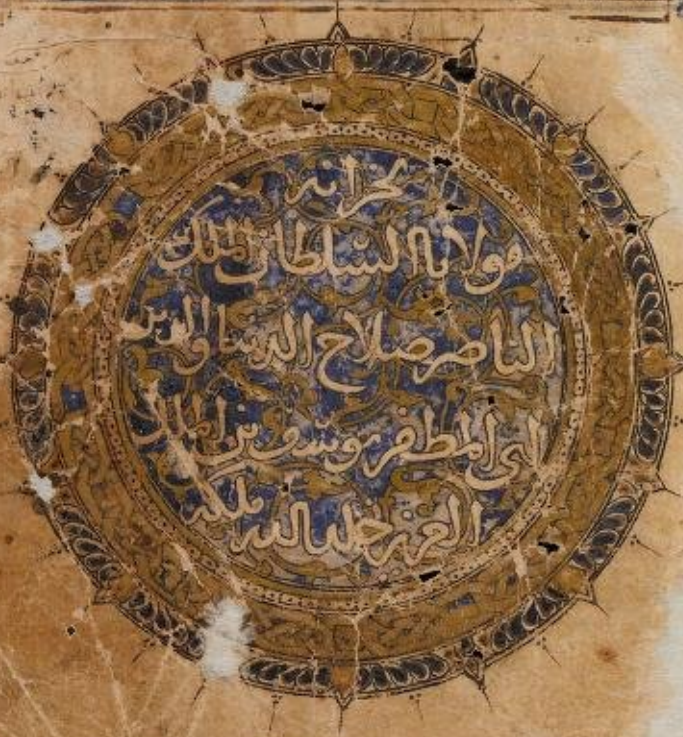 بخزانة
مولانا السلطان الملك
الناصر صلاح الدنيا والدين
ابى المظفر يوسف بن الملك
العزيز خلد الله ملكه